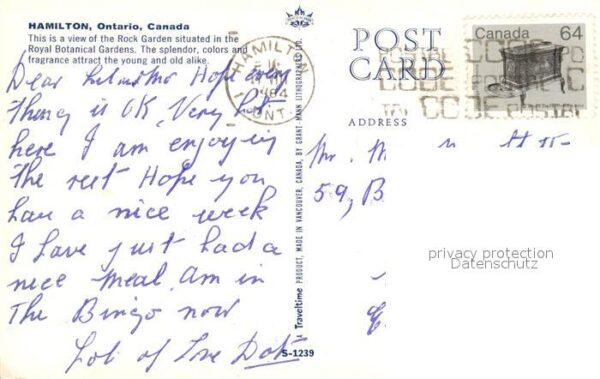 HAMILTON, Ontario, Canada
This is a view of the Rock Garden situated in the
Royal Botanical Gardens. The splendor, colors and
fragrance attract the young and old alike.
Dear Hope every
thing is OK Very hot
here I am enjoying
the rest Hope you
have a nice week
I have just had a
nice meal. am in
The Bingo now
Lot of Love Dot
S-1239
A Traveltime PRODUCT, MADE IN VANCOUVER, CANADA, BY GRANT-MANN LITHOGRAPHERS LTD.
HAMILTON
1984
ONT.
POST
CARD
ADDRESS
Canada 64
POSTAL CODE
CODE POSTAL
Mr. M
59, B
privacy protection
Datenschutz